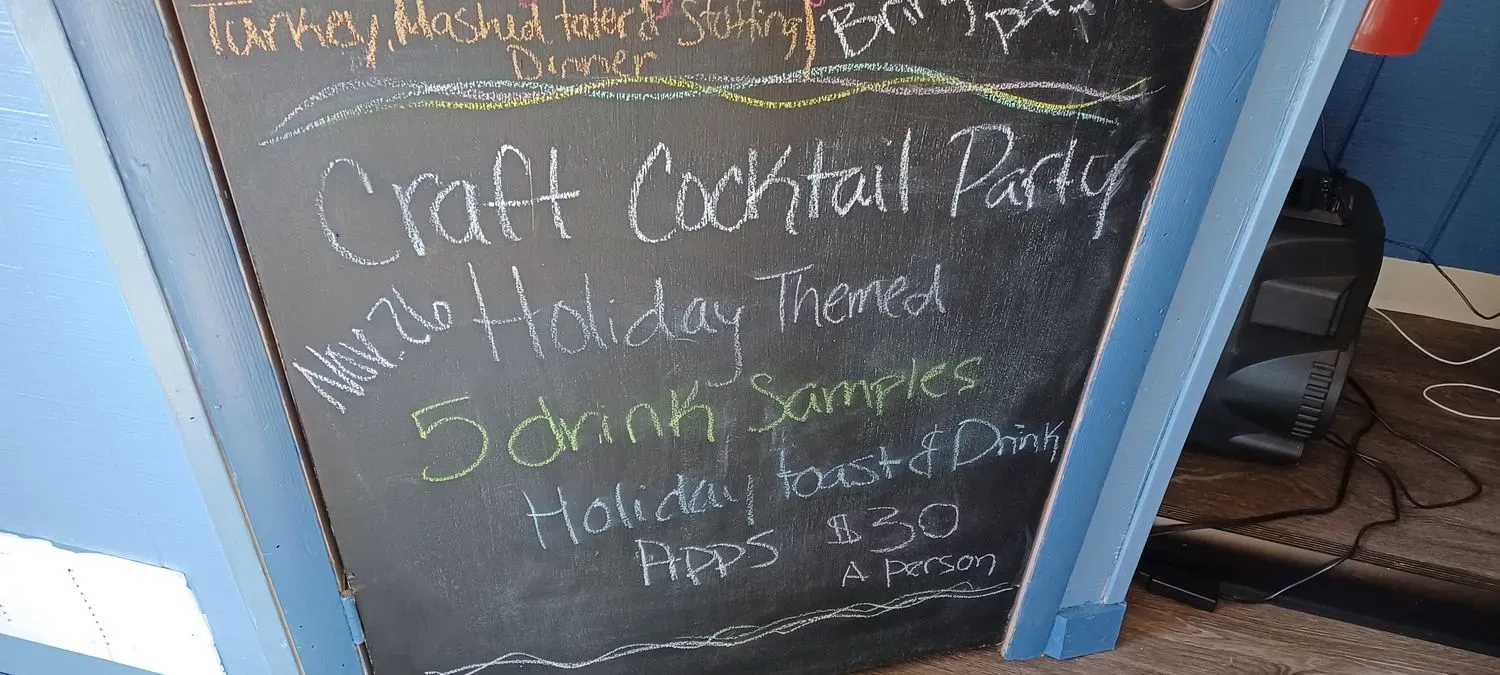 Turkey, Mashed tater & Stuffing
Dinner
Bring
Craft Cocktail Party
Nov. 26
Holiday Themed
5 drink Samples
Holiday toast & Drink
APPS $30
A person